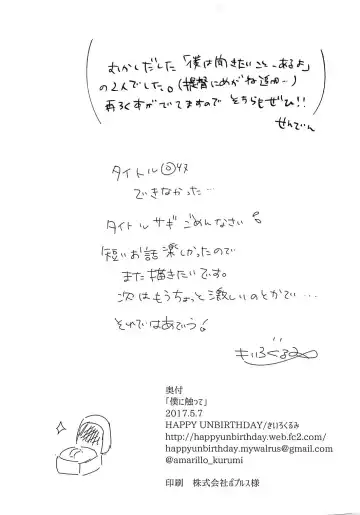 むかしだした「僕は向きたいこと、あるよ」
の2人でした。(提督にめがね追加…)
再ろくすがでてますので そちらもぜひ!!
ぜんでいん
タイトル
できなかった…
タイトルサギ ごめんなさい
短いお話楽しかったので
また描きたいです。
次はもうちょっと激しいのとかで…
それではあでゅう
きいろくるみ
奥付
「僕に触って」
2017.5.7
HAPPY UNBIRTHDAY/きいろくるみ
http://happyunbirthday.web.fc2.com/
happyunbirthday.mywalrus@gmail.com
@amarillo_kurumi
印刷 株式会社ポプルス様